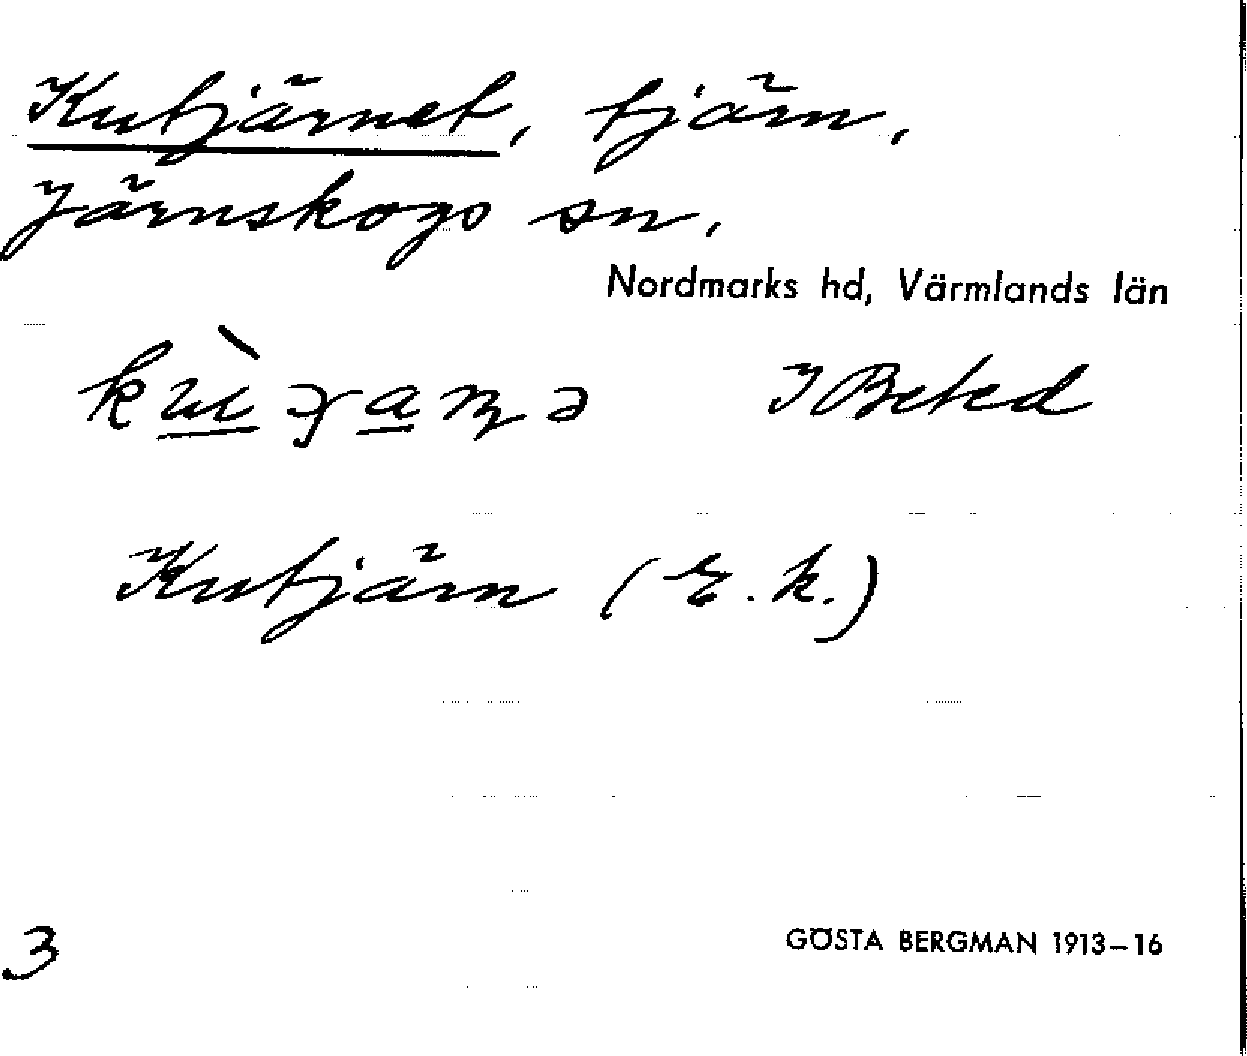 Kutjärnet, tjärn,
Järnskogs sn.
Nordmarks hd, Värmlands län
I Beted
Kutjärn (E.k.)
3
GÖSTA BERGMAN 1913–16